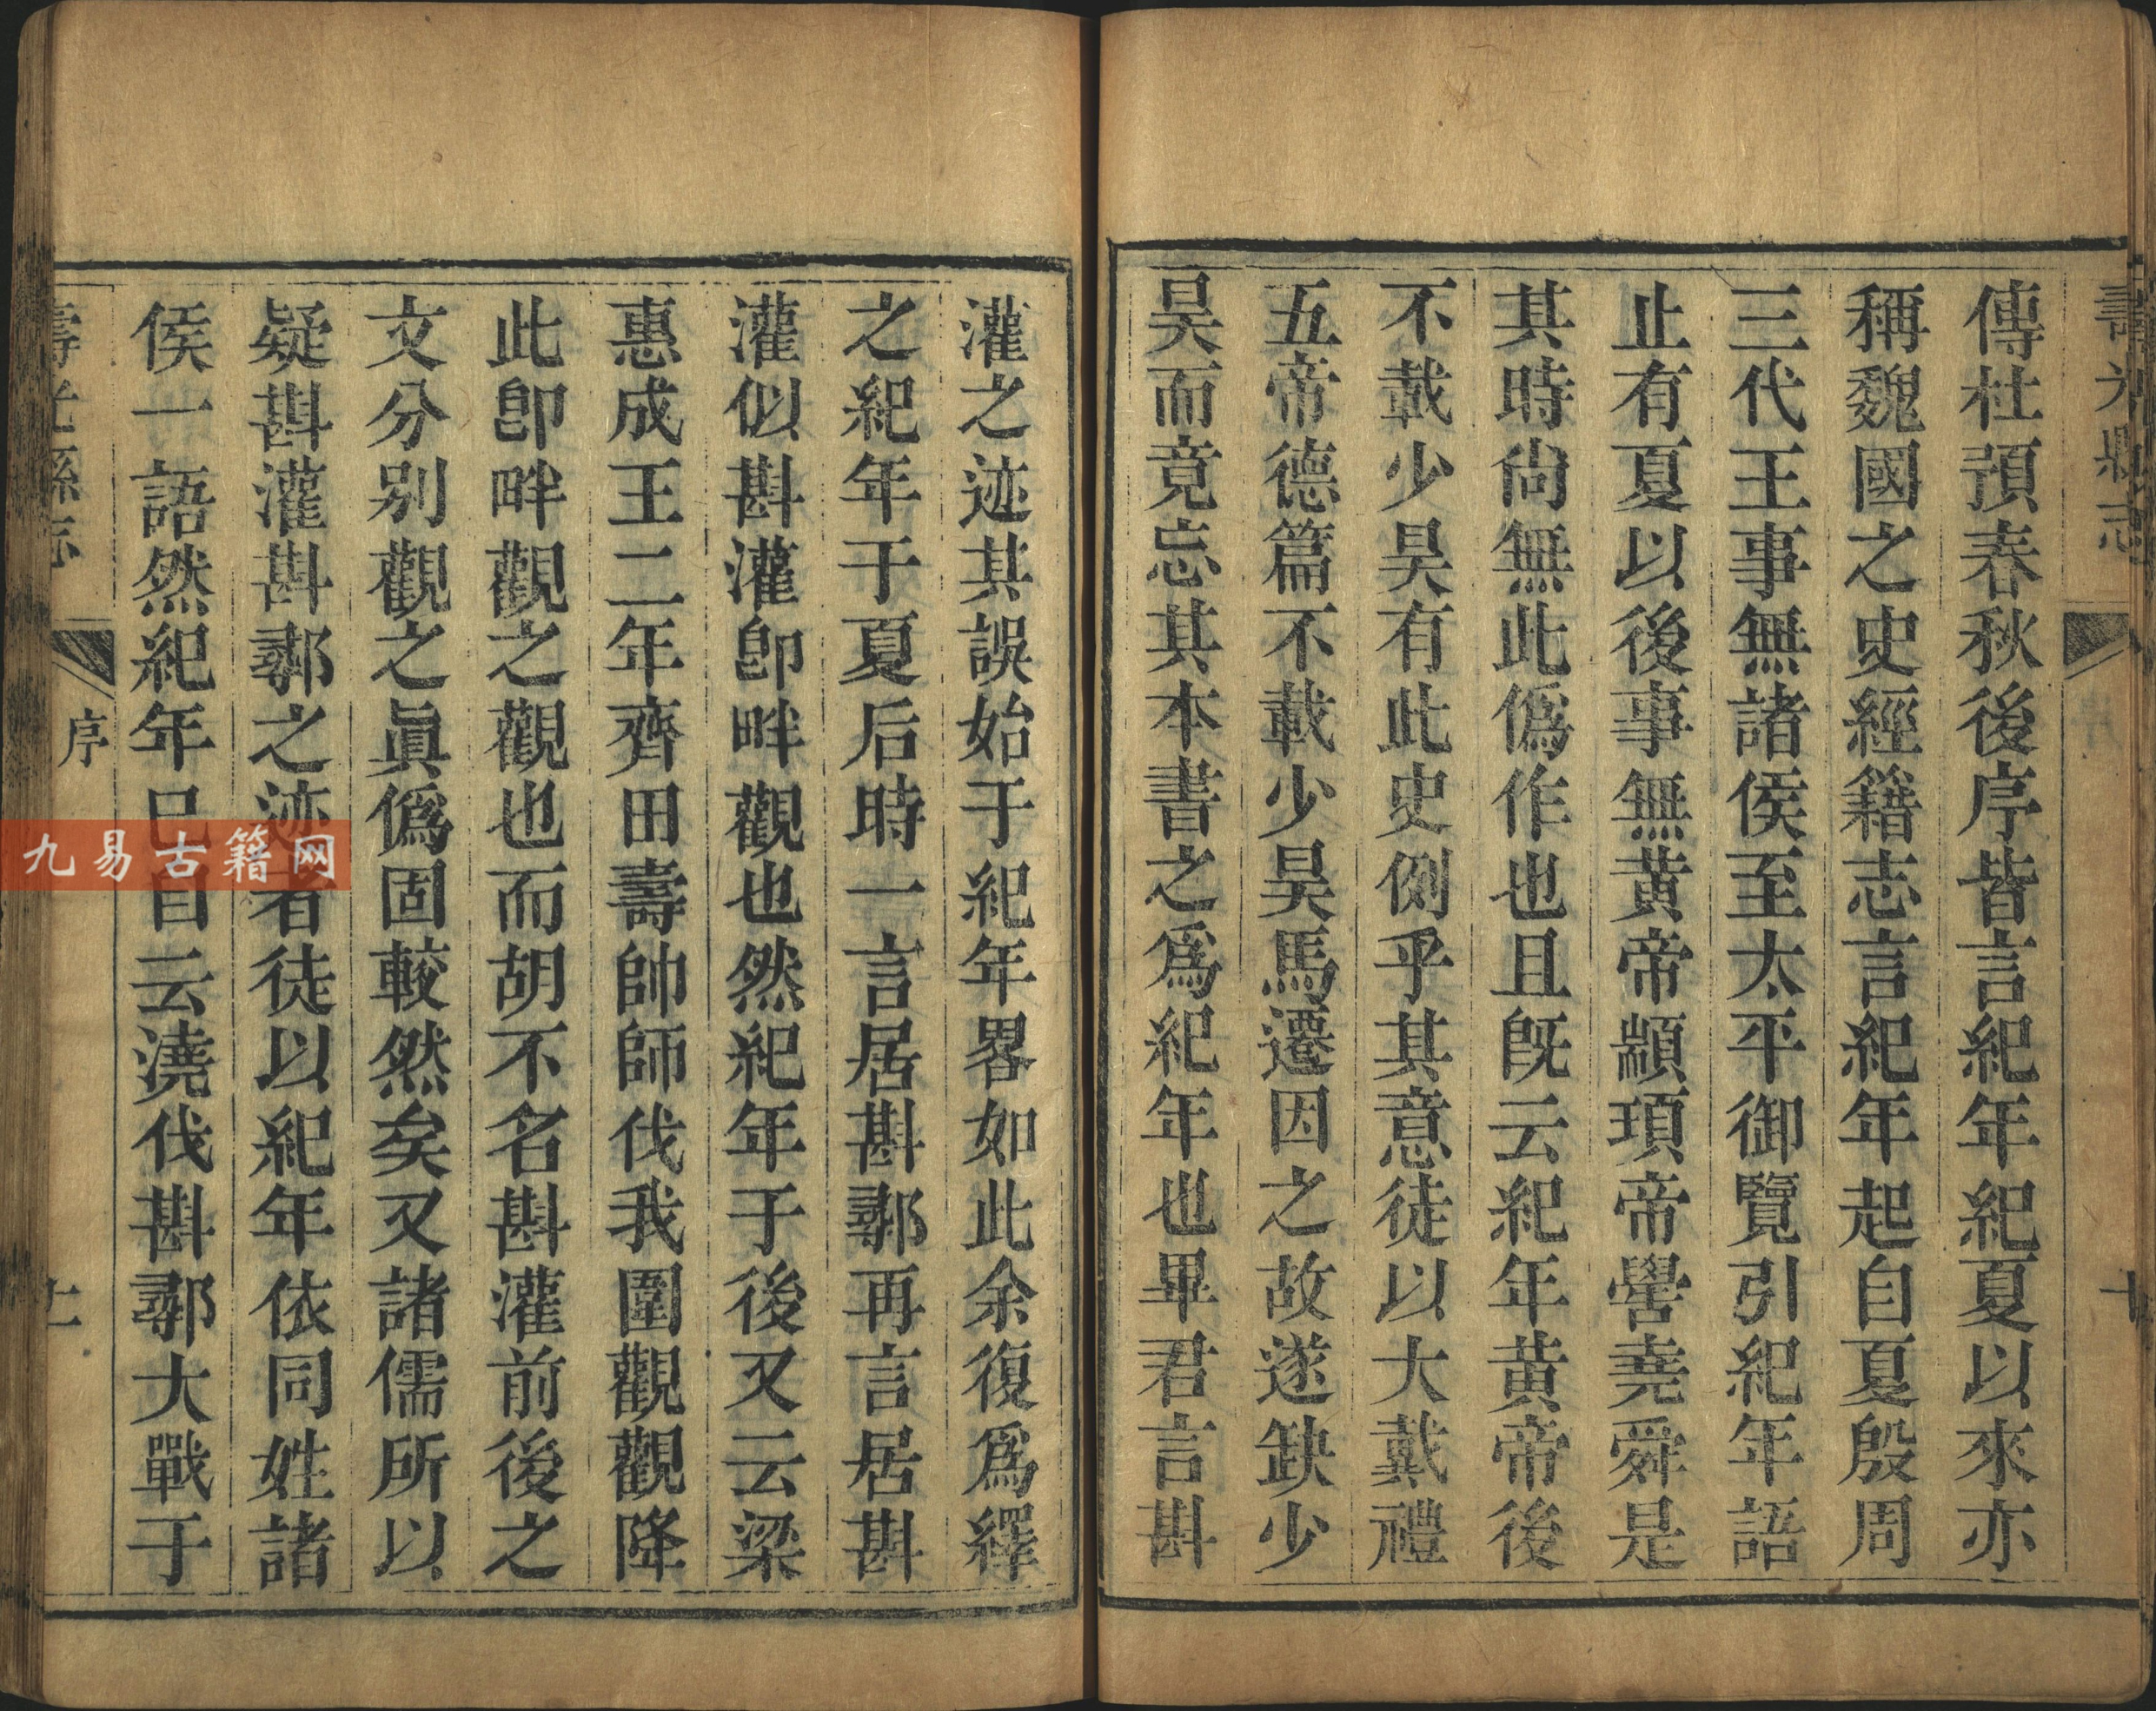 壽光縣志
十
傳杜預春秋後序皆言紀年紀夏以來亦
稱魏國之史經籍志言紀年起自夏殷周
三代王事無諸侯至太平御覽引紀年語
止有夏以後事無黃帝顓頊帝嚳堯舜是
其時尙無此僞作也且旣云紀年黃帝後
不載少昊有此史例乎其意徒以大戴禮
五帝德篇不載少昊馬遷因之故遂缺少
昊而竟忘其本書之爲紀年也畢君言斟
灌之迹其誤始于紀年畧如此余復爲繹
之紀年于夏后時一言居斟鄩再言居斟
灌似斟灌卽畔觀也然紀年于後又云梁
惠成王二年齊田壽帥師伐我圍觀觀降
此卽畔觀之觀也而胡不名斟灌前後之
文分别觀之眞僞固較然矣又諸儒所以
疑斟灌斟鄩之迹者徒以紀年依同姓諸
侯一語然紀年巳自云澆伐斟鄩大戰于
壽光縣志
序
九易古籍网